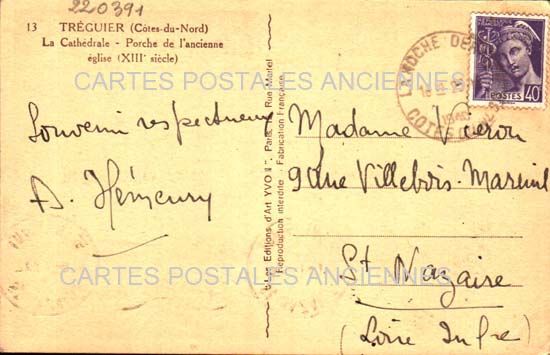 220391
13 TRÉGUIER (Côtes-du-Nord)
La Cathédrale - Porche de l'ancienne
église (XIIIe siècle)
CARTES POSTALES ANCIENNES
Souvenir respectueux
A. Hémeury
Editions d'Art YVON, Paris, Rue Martel
Reproduction interdite Fabrication Française
LA ROCHE DE
1940
COTES DU
POSTES 40
Madame
9 rue Villebois-Mareuil
St Nazaire
(Loire Infre)
CARTES POSTALES ANCIENNES